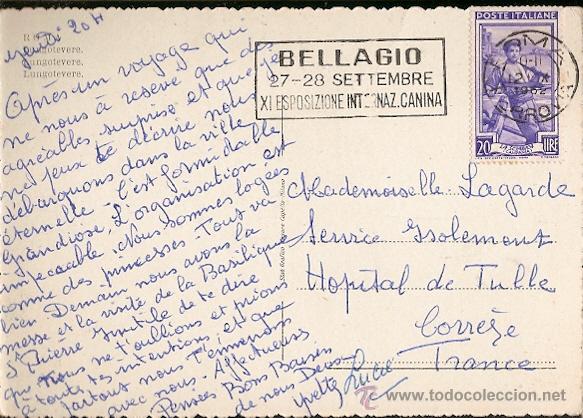 Jeudi 20 h
Lungotevere.
Lungotevere.
Lungotevere.
Après un voyage qui
ne nous a réservé que des
agréables surprises et que je
ne peux te décrire nous
débarquons dans la ville
éternelle - c'est formidable
Grandiose, L'organisation est
impeccable. Nous sommes logées
comme des princesses - Tout va
bien Demain nous avons la
messe et la visite de la Basilique
St Pierre Inutile de te dire
que nous ne t'oublions et prions
à toutes tes intentions, et que
partout nous t'emmenons
avec nous - Affectueuses
Pensées Bons Baisers
de nous Deux
Yvette Lucie
BELLAGIO
27-28 SETTEMBRE
XI ESPOSIZIONE INTERNAZ. CANINA
POSTE ITALIANE
20 LIRE
ROMA
1952
Mademoiselle Lagarde
Service Isolement
Hopital de Tulle
Corrèze
France
www.todocoleccion.net